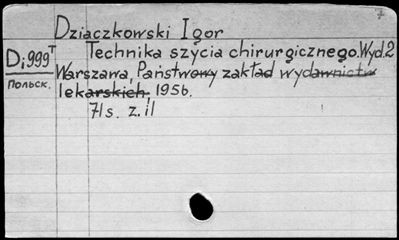 Dziaczkowski Igor
Di999T Technika szycia chirurgicznego. Wyd. 2
Польск. Warszawa, Państwowy zakład wydawnictw
lekarskich, 1956.
71s. z. il